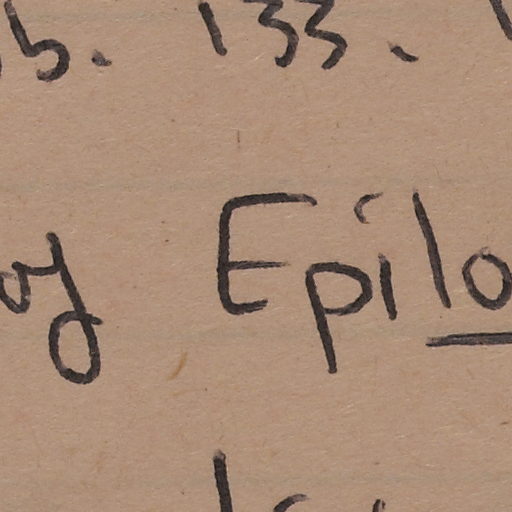 b. 133.
og Epilo